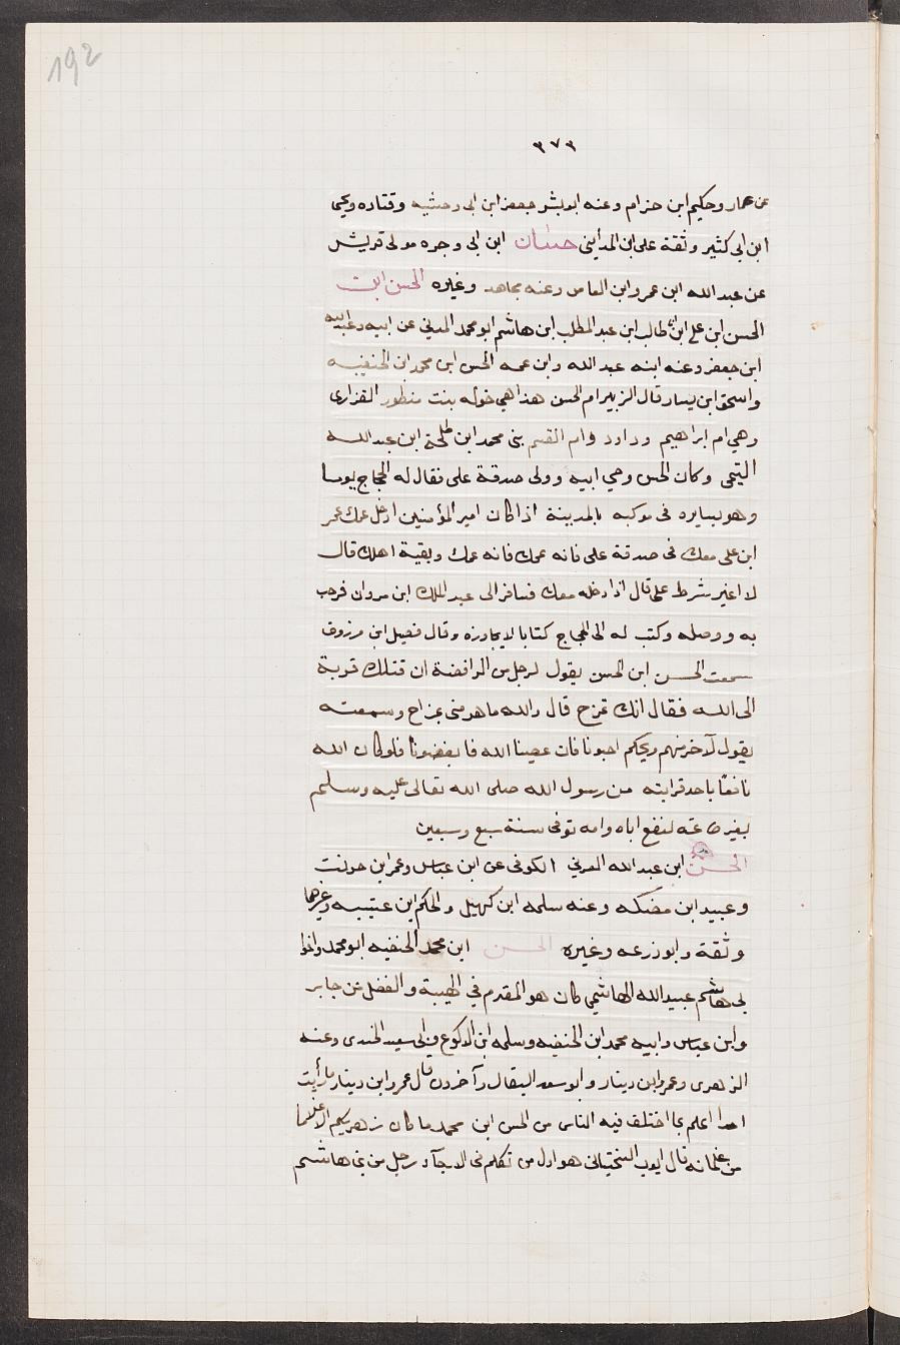 192
٣٧٣
عن عمار وحكيم ابن حزام وعنه ابو بشر جعفر ابن ابى وحشيه وقتاده ويحيى
ابن ابى كثير وثقة على ابن المدايني حسان ابن ابى وجره مولى قريش
عن عبد الله ابن عمرو ابن العاص وعنه مجاهد وغيره الحسن ابن
الحسن ابن على ابن ابى طالب ابن عبد المطلب ابن هاشم ابو محمد المدني عن ابيه وعبد الله
ابن جعفر وعنه ابنه عبد الله وابن عمه الحسن ابن محمد ابن الحنفيه
واسحق ابن يسار قال الزبير ام الحسن هذا هي خوله بنت منظور الفزارى
وهي ام ابراهيم وداود وام القسم بنى محمد ابن طلحة ابن عبد الله
التيمى وكان الحسن وصي ابيه وولى صدقة على فقال له الحجاج يوما
وهو يسايره فى موكبه بالمدينة اذا كان امير المؤمنين ادخل عمك عمر
ابن على معك فى صدقة على فانه عمك فانه عمك وبقية اهلك قال
لا اغير شرط على قال اذا ادخله معك فسافر الى عبد الملك ابن مروان فرحب
به ووصله وكتب له الى الحجاج كتابا لا يجاوزه وقال فضيل ابن مرزوق
سمعت الحسن ابن الحسن يقول لرجل من الرافضة ان قتلك قربة
الى الله فقال انك تمزح قال والله ما هو منى بمزاح وسمعته
يقول لآخر منهم ويحكم احبونا فان عصينا الله فابغضونا فلو كان الله
نافعًا باحد قرابته من رسول الله صلى الله تعالى عليه وسلم
بغير طاعته لنفع اباه وامه توفى سنة سبع وسبعين
الحسن ابن عبد الله العرني الكوفى عن ابن عباس وعمر ابن حريث
وعبيد ابن وعنه سلمه ابن كهيل والحكم ابن عتيبه وغيرها
وثقة وابو زرعه وغيره الحسن ابن محمد الحنفيه ابو محمد واخوا
ابى هاشم عبيد الله الهاشمي كان هو المقدم في الهيبة والفضل عن جابر
وابن عباس وابيه محمد ابن الحنفيه وسلمه ابن الاكوع وابى سعيد الخدرى وعنه
الزهرى وعمرو ابن دينار وابو سعد البقال وآخرون قال عمرو ابن دينار ما رأيت
احدا اعلم بما اختلف فيه الناس من الحسن ابن محمد ما كان زهريكم الا غلاما
من غلمانه قال ايوب السختيانى هو اول من تكلم فى الارجآء رجل من بنى هاشم